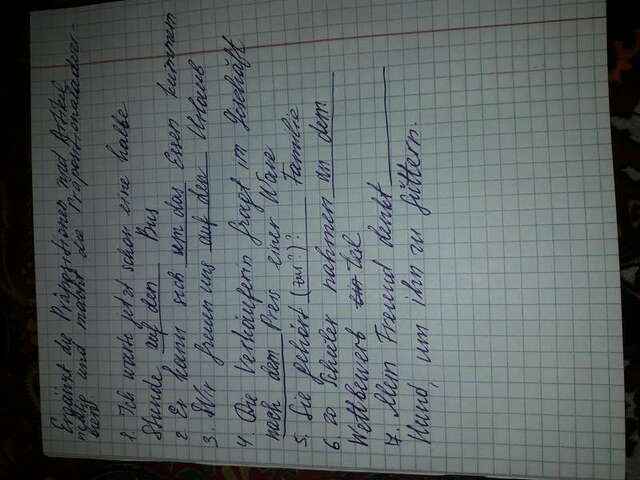 Ergänzt die Präpositionen und Artikel
richtig und macht die Präpositionaladver-
bien!
1. Ich warte jetzt schon eine halbe
Stunde auf den Bus
2. Er kann sich um das Essen kümmern
3. Wir freuen uns auf den Urlaub
4. Die Verkäuferin fragt im Geschäft
nach dem Preis einer Ware
5. Sie gehört (zur?)? Familie
6. 20 Schüler nahmen an dem
Wettbewerb ein teil
7. Mein Freund denkt
Hund, um ihn zu füttern.